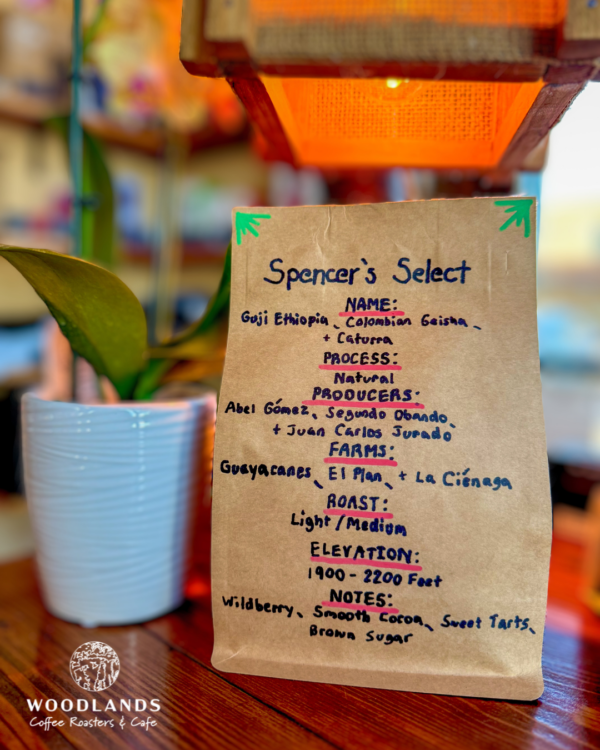 Spencer's Select
NAME:
Guji Ethiopia, Colombian Geisha,
+ Caturra
PROCESS:
Natural
PRODUCERS:
Abel Gómez, Segundo Obando,
+ Juan Carlos Jurado
FARMS:
Guayacanes, El Plan, + La Ciénaga
ROAST:
Light/Medium
ELEVATION:
1900 - 2200 Feet
NOTES:
Wildberry, Smooth Cocoa, Sweet Tarts,
Brown Sugar
WOODLANDS
Coffee Roasters & Cafe